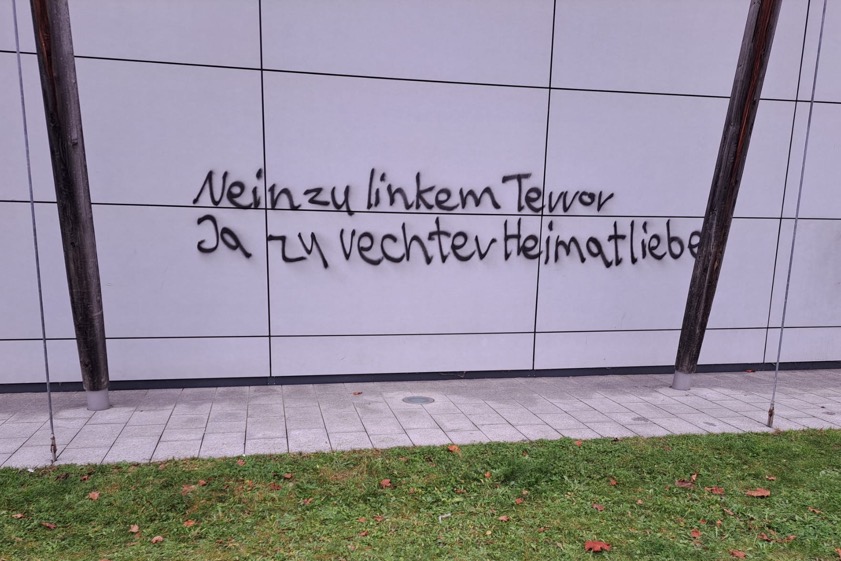 Nein zu linkem Terror
Ja zu rechter Heimatliebe